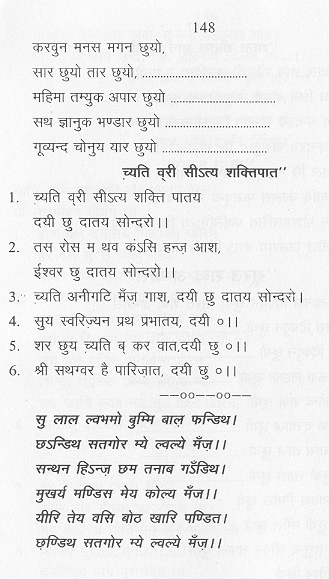 148
करवुन मनस मगन छुयो,
सार छुयो तार छुयो, ..............................
महिमा तम्युक अपार छुयो ..............................
सथ ज्ञानुक भण्डार छुयो ..............................
गूव्यन्द चोनुय यार छुयो ..............................
च़्यति व्री सीऽत्य शक्तिपात"
1. च़्यति व्री सीऽत्य शक्ति पातय
दयी छु दातय सोन्दरो।।
2. तस रोस म थव कंऽसि हन्ज़ आश,
ईश्वर छु दातय सोन्दरो।।
3. च़्यति अनीगटि मँज़ गाश, दयी छु दातय सोन्दरो।
4. सुय स्वरिज़्यन प्रथ प्रभातय, दयी ०।।
5. शर छुय च़्यति ब् कर वात,दयी छु ०।।
6. श्री सथग्वर है पारिजात, दयी छु ०।।
––oo––oo––
सु लाल ल्वभमो बुम्मि बाल़ फन्डिथ।
छऽन्डिथ सतगोर म्ये ल्वल्ये मँज़।।
सन्थन हिऽन्ज़ छम तनाब गऽँडिथ।
मुखर्य मण्डिस मेय कोल्य मँज़।।
यीरि तेय वसि बोठ खारि पण्डित।
छ़ण्डिथ सतगोर म्ये ल्वल्ये मँज़।।